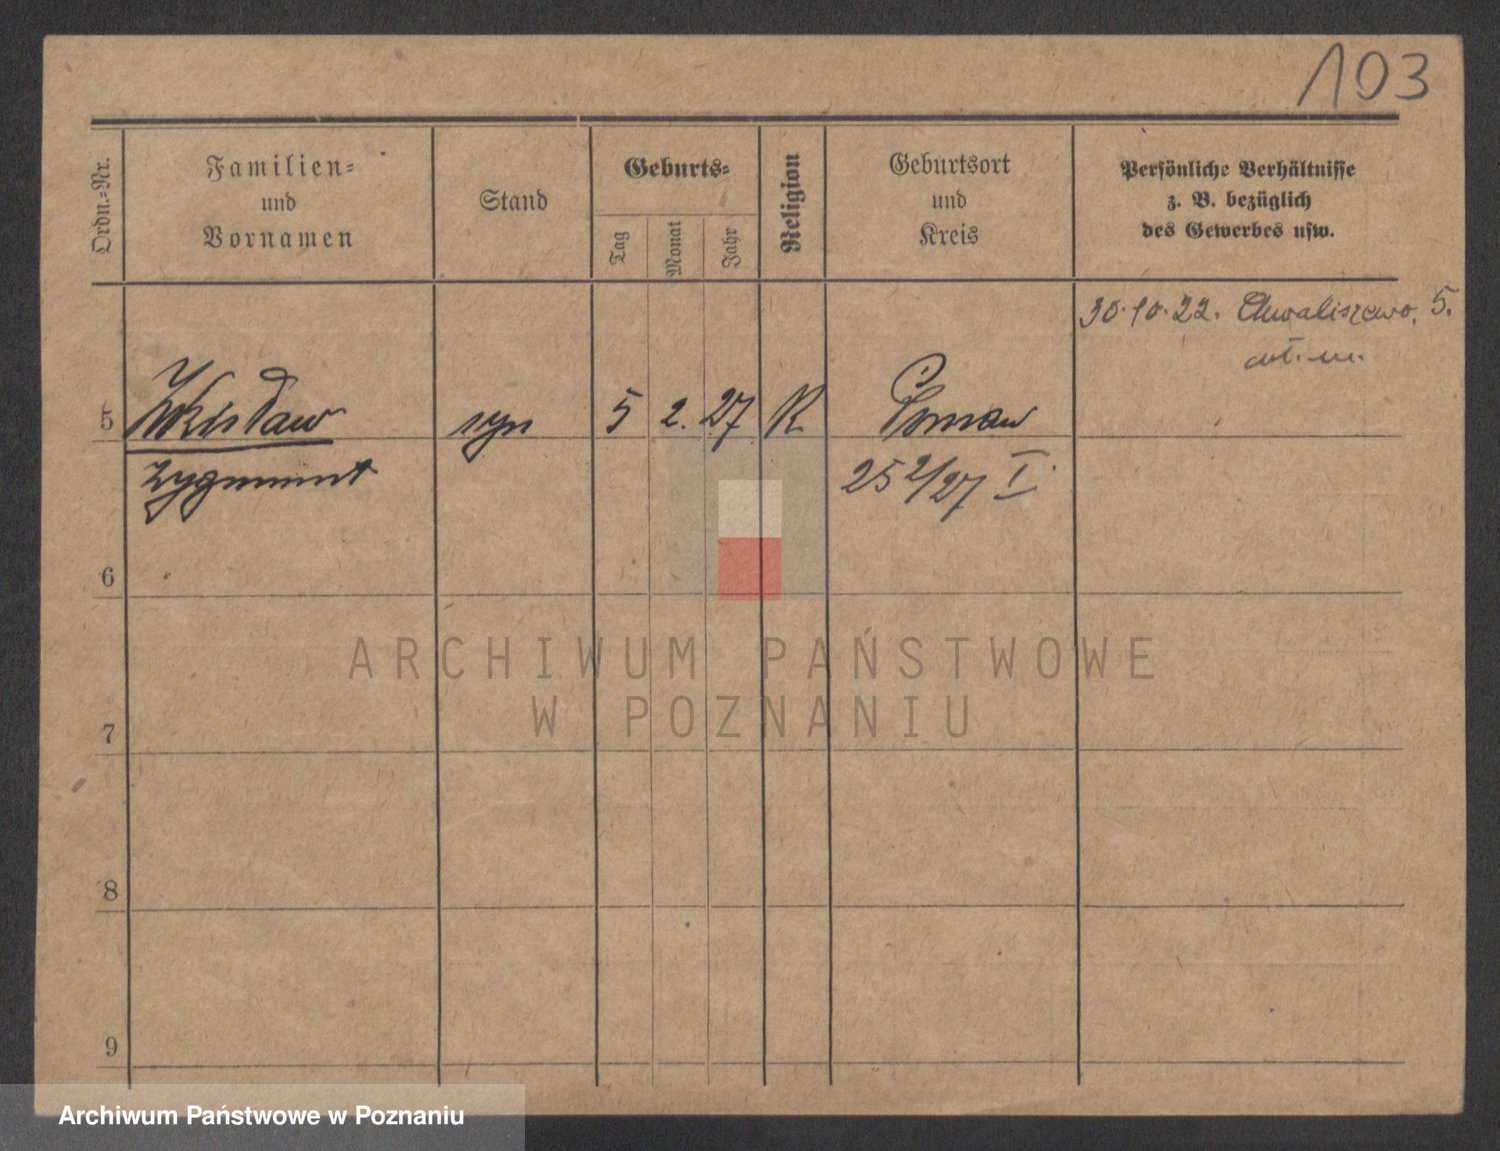 103
Ordn.-Nr.
Familien-
und
Vornamen
Stand
Geburts-
Tag
Monat
Jahr
Religion
Geburtsort
und
Kreis
Persönliche Verhältnisse
z. B. bezüglich
des Gewerbes usw.
30.10.22. Chwaliszewo. 5.
5 syn 5 2. 27 R
Zygmunt 252/27 I
6
7
8
9
ARCHIWUM PAŃSTWOWE
W POZNANIU
Archiwum Państwowe w Poznaniu